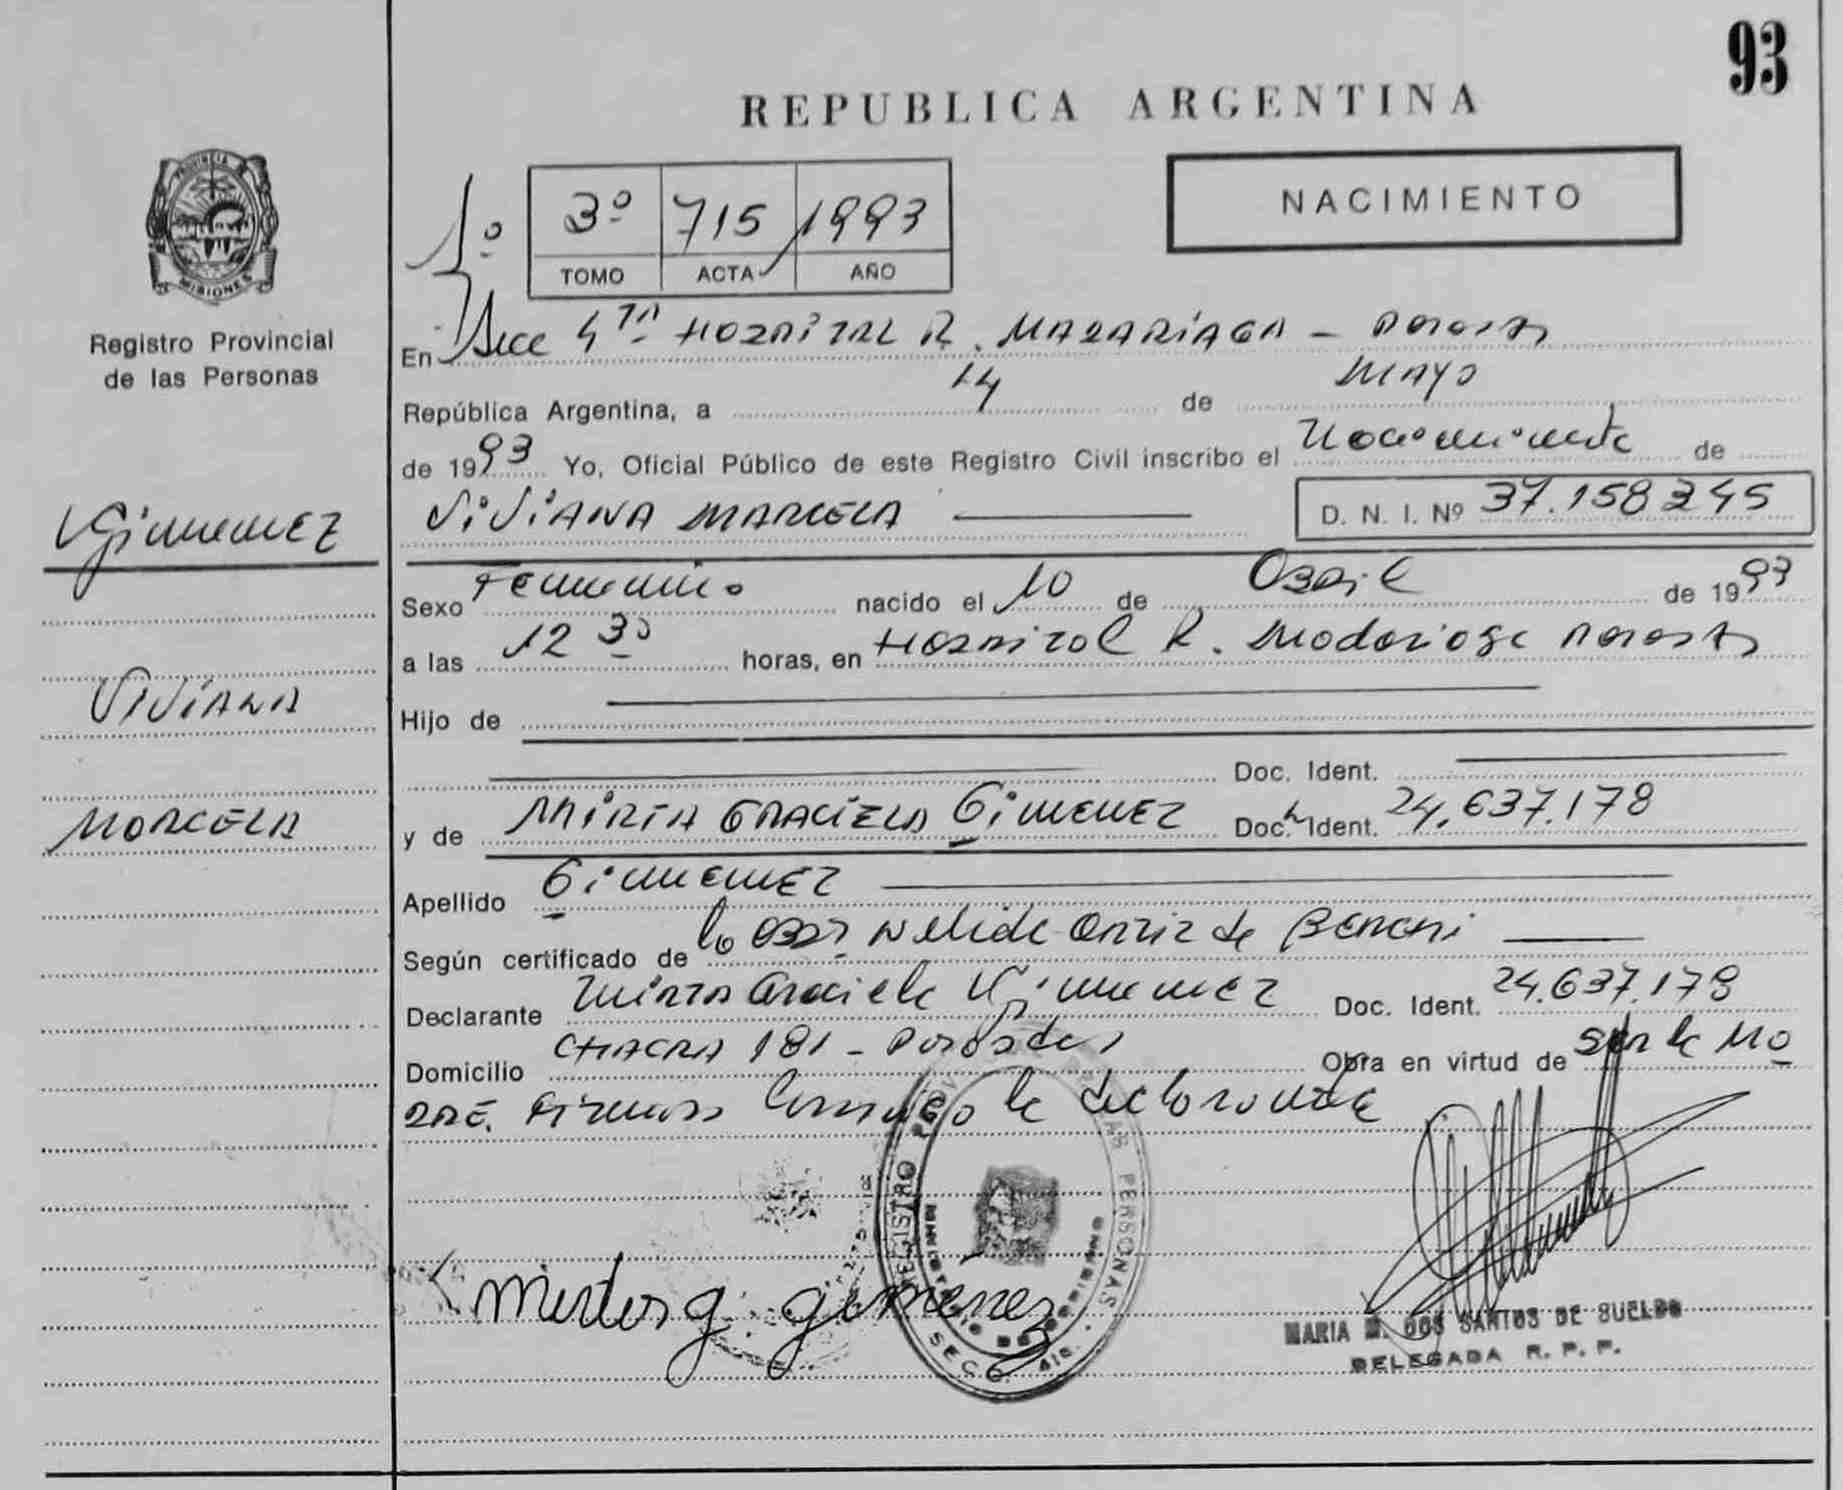 93
REPUBLICA ARGENTINA
PROVINCIA DE
MISIONES
Registro Provincial
de las Personas
1º
3º 715 1993
TOMO ACTA AÑO
NACIMIENTO
En Secc 4ta HOSPITAL R. MADARIAGA - Posadas
República Argentina, a 14 de MAYO
de 1993 Yo, Oficial Público de este Registro Civil inscribo el Nacimiento de
Gimenez
VIVIANA MARCELA
D. N. I. Nº 37.158245
Sexo Femenino nacido el 10 de Abril de 1993
a las 12 30 horas, en Hospital R. Madariaga Posadas
VIVIANA
Hijo de
Doc. Ident.
MARCELA
y de MIRTA GRACIELA GIMENEZ Doc. Ident. 24.637.178
Apellido GIMENEZ
Según certificado de la Obst Nelida Ortiz de
Declarante Mirta Graciela Gimenez Doc. Ident. 24.637.178
Domicilio CHACRA 181 - Posadas Obra en virtud de ser la Ma
dre. Firman Conmigo la declarante
REGISTRO PERSONAS
SECC. 4ta.
g. gimenez
MARIA M. DOS SANTOS DE SUELDO
DELEGADA R. P. P.